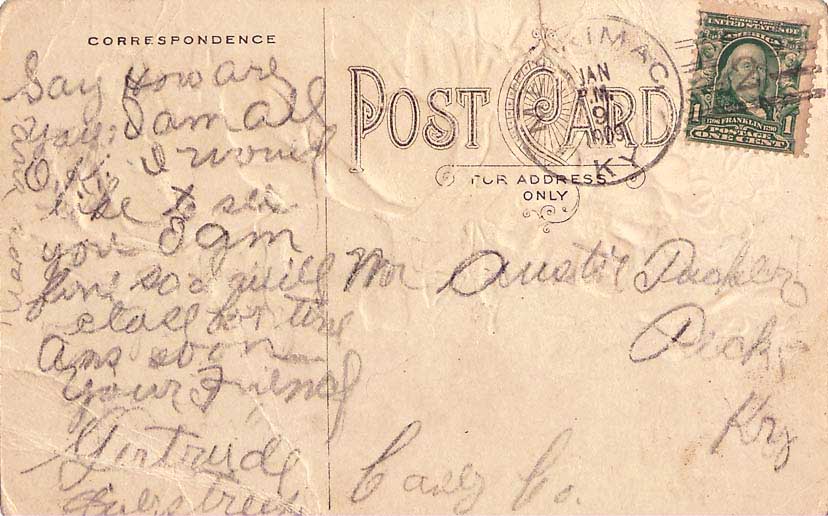 CORRESPONDENCE
Say How are
you, I am all
O.K. I would
like to see
you I am
fine so a will
close for time
Ans soon
your Friend
Gertrude
POST CARD
FOR ADDRESS
ONLY
JAN
9
KY
UNITED STATES OF
AMERICA
FRANKLIN
POSTAGE
1 ONE CENT 1
Mr Austin
Ky
Casey Co.